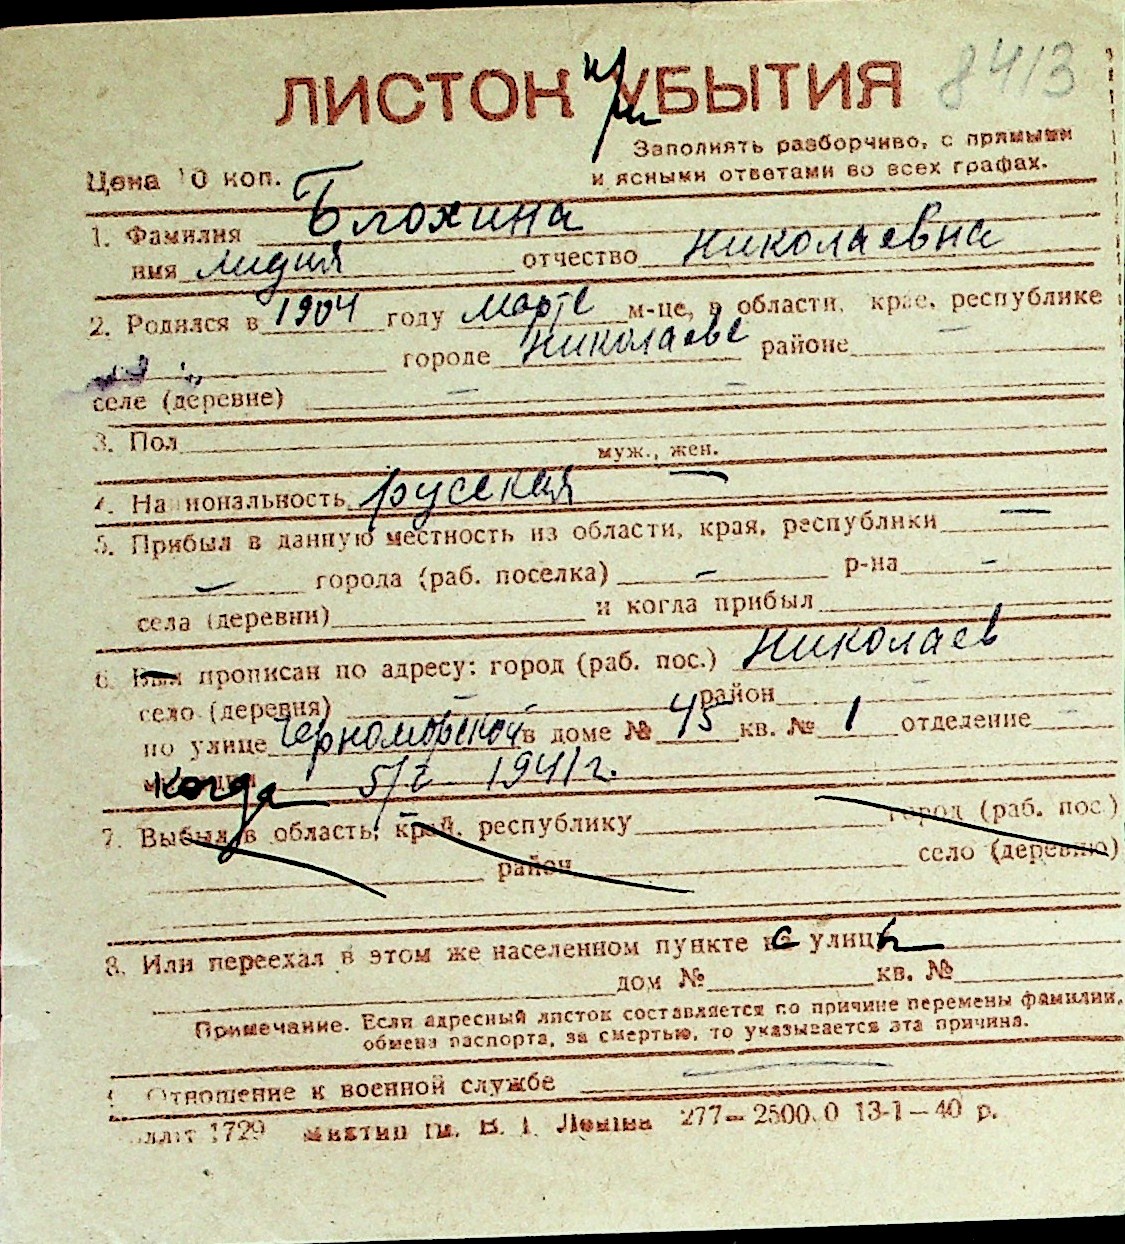 8413
ЛИСТОК при УБЫТИЯ
Заполнять разборчиво, с прямыми
и ясными ответами во всех графах.
Цена 10 коп.
1. Фамилия Блохина
имя Лидия отчество Николаевна
2. Родился в 1904 году марте м-це, в области, крае, республике
городе Николаеве районе —
селе (деревне) — —
3. Пол
муж., жен.
4. Национальность русская
5. Прибыл в данную местность из области, края, республики —
— города (раб. поселка) — р-на —
села (деревни) и когда прибыл
6. Был прописан по адресу: город (раб. пос.) Николаев
село (деревня) — — район —
по улице Черноморской в доме № 45 кв. № 1 отделение —
милиции когда 5/I 1941 г.
7. Выбыл в область, край, республику город (раб. пос.)
район село (деревню)
8. Или переехал в этом же населенном пункте с улицы
дом № кв. №
Примечание. Если адресный листок составляется по причине перемены фамилии,
обмена паспорта, за смертью, то указывается эта причина.
Отношение к военной службе —
1729 им. В. І. Леніна 277—2500.0 13-1—40 р.